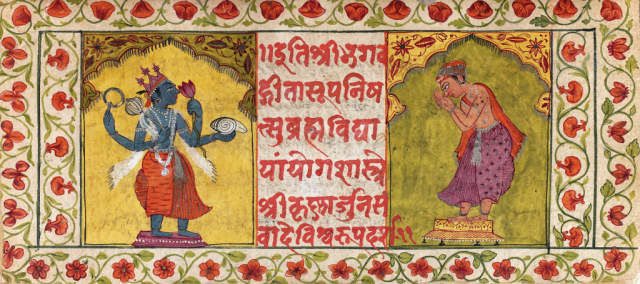 ॥इतिश्रीभगव
द्गीतासूपनिष
त्सुब्रह्मविद्या
यांयोगशास्त्रे
श्रीकृष्णार्जुनसं
वादेविश्वरुप